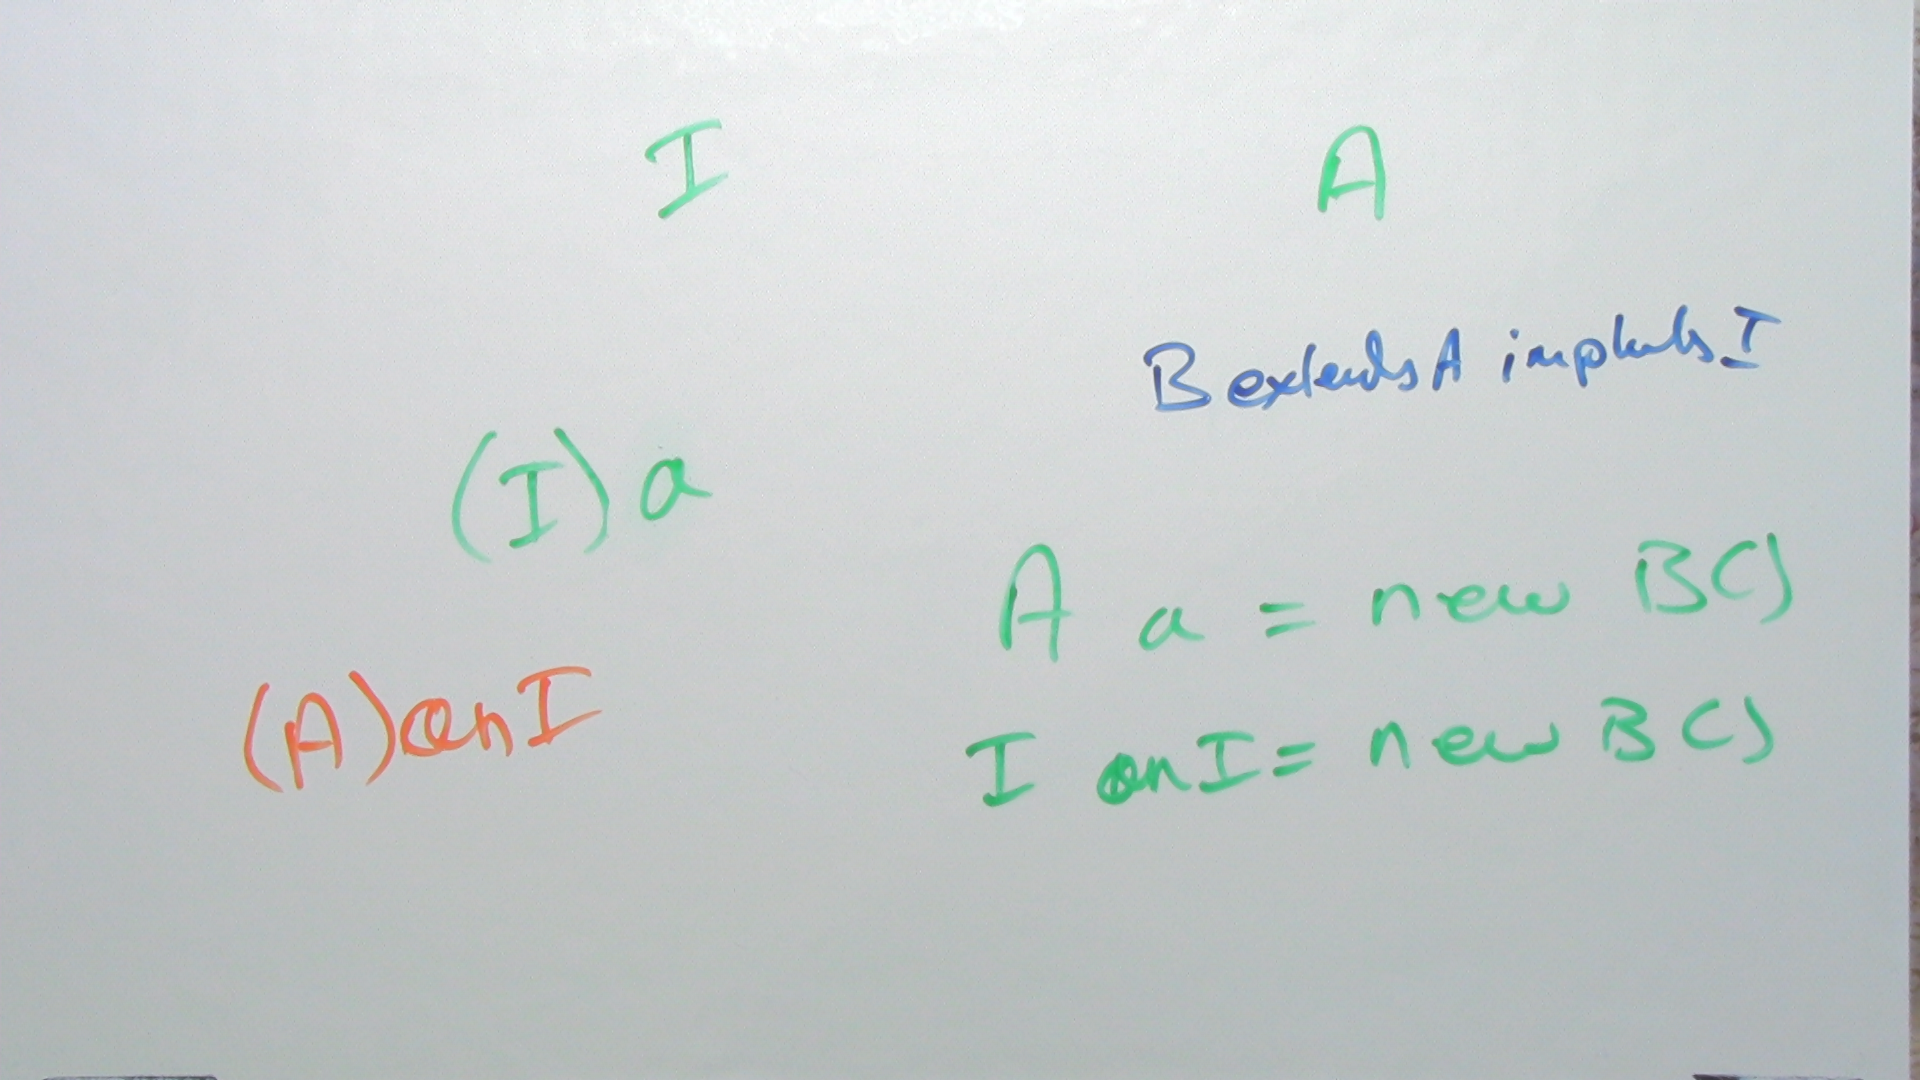 I A
B extends A implements I
(I) a
A a = new B()
(A) anI
I anI = new B()